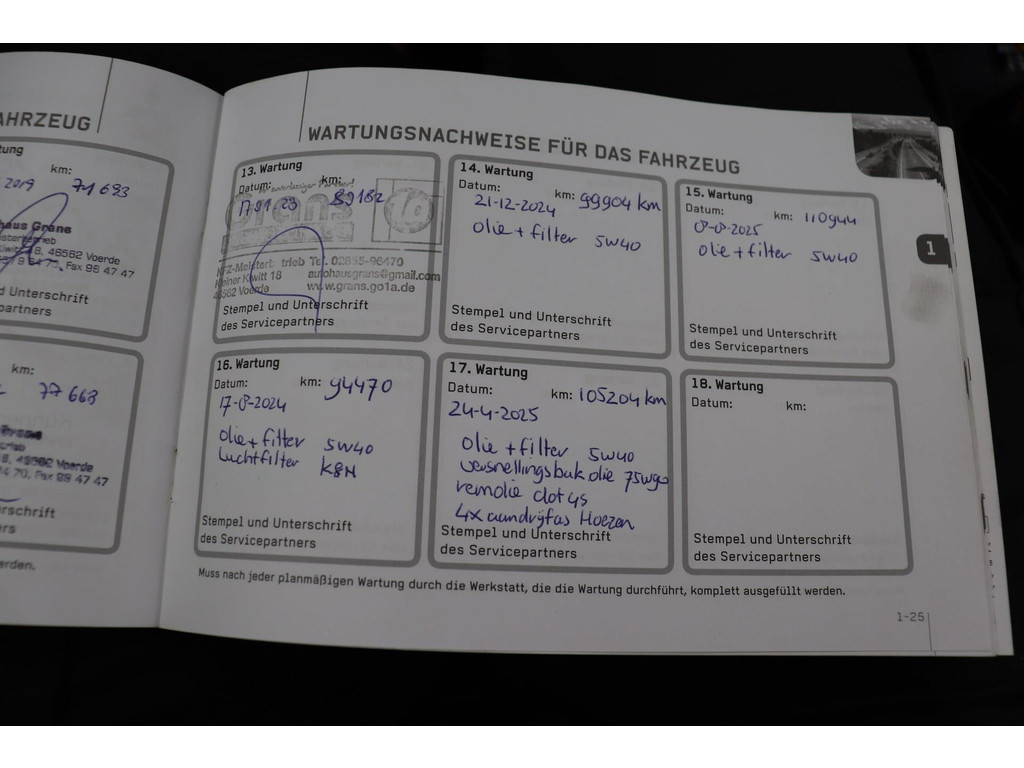 AHRZEUG
tung
km:
2019 71693
haus Grans
46562 Voerde
Fax 96 47 47
d Unterschrift
partners
km:
77 663
46562 Voerde
Fax 96 47 47
rschrift
rs
erden.
WARTUNGSNACHWEISE FÜR DAS FAHRZEUG
13. Wartung
Datum: km:
17.01.23 89182
Grans
Tel. 02855-96470
Kleiner Kiwitt 18 autohausgrans@gmail.com
46562 Voerde www.grans.go1a.de
Stempel und Unterschrift
des Servicepartners
14. Wartung
Datum: km: 99904 km
21-12-2024
olie + filter 5W40
Stempel und Unterschrift
des Servicepartners
15. Wartung
Datum: km: 110944
8-8-2025
olie + filter 5W40
Stempel und Unterschrift
des Servicepartners
1
16. Wartung
Datum: km: 94470
17-8-2024
olie + filter 5W40
luchtfilter
Stempel und Unterschrift
des Servicepartners
17. Wartung
Datum: km: 105204 km
24-4-2025
olie + filter 5W40
versnellingsbak olie 75W90
remolie dot 4s
4x aandrijfas Hoezen
Stempel und Unterschrift
des Servicepartners
18. Wartung
Datum: km:
Stempel und Unterschrift
des Servicepartners
Muss nach jeder planmäßigen Wartung durch die Werkstatt, die die Wartung durchführt, komplett ausgefüllt werden.
1-25